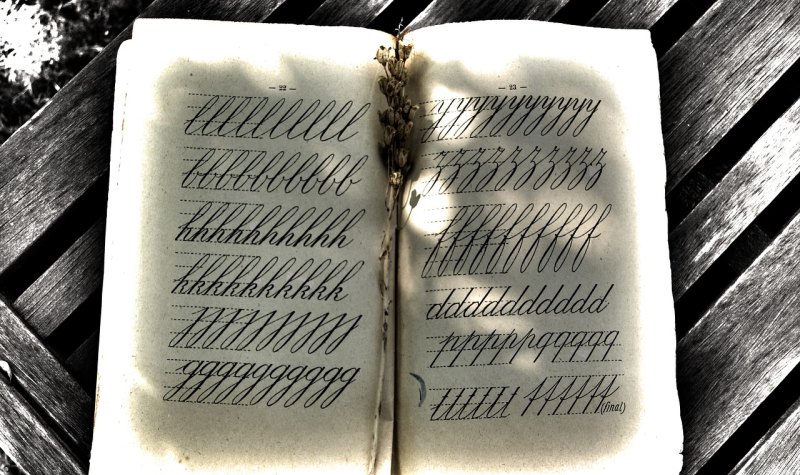 — 22 —
llllllllll
bbbbbbbbbb
hhhhhhhhhh
kkkkkkkkkk
jjjjjjjjjj
gggggggggg
— 23 —
yyyyyyyyyy
zzzzzzzzzz
ffffffffff
dddddddddd
pppppqqqqq
tttttt tttttt (final)